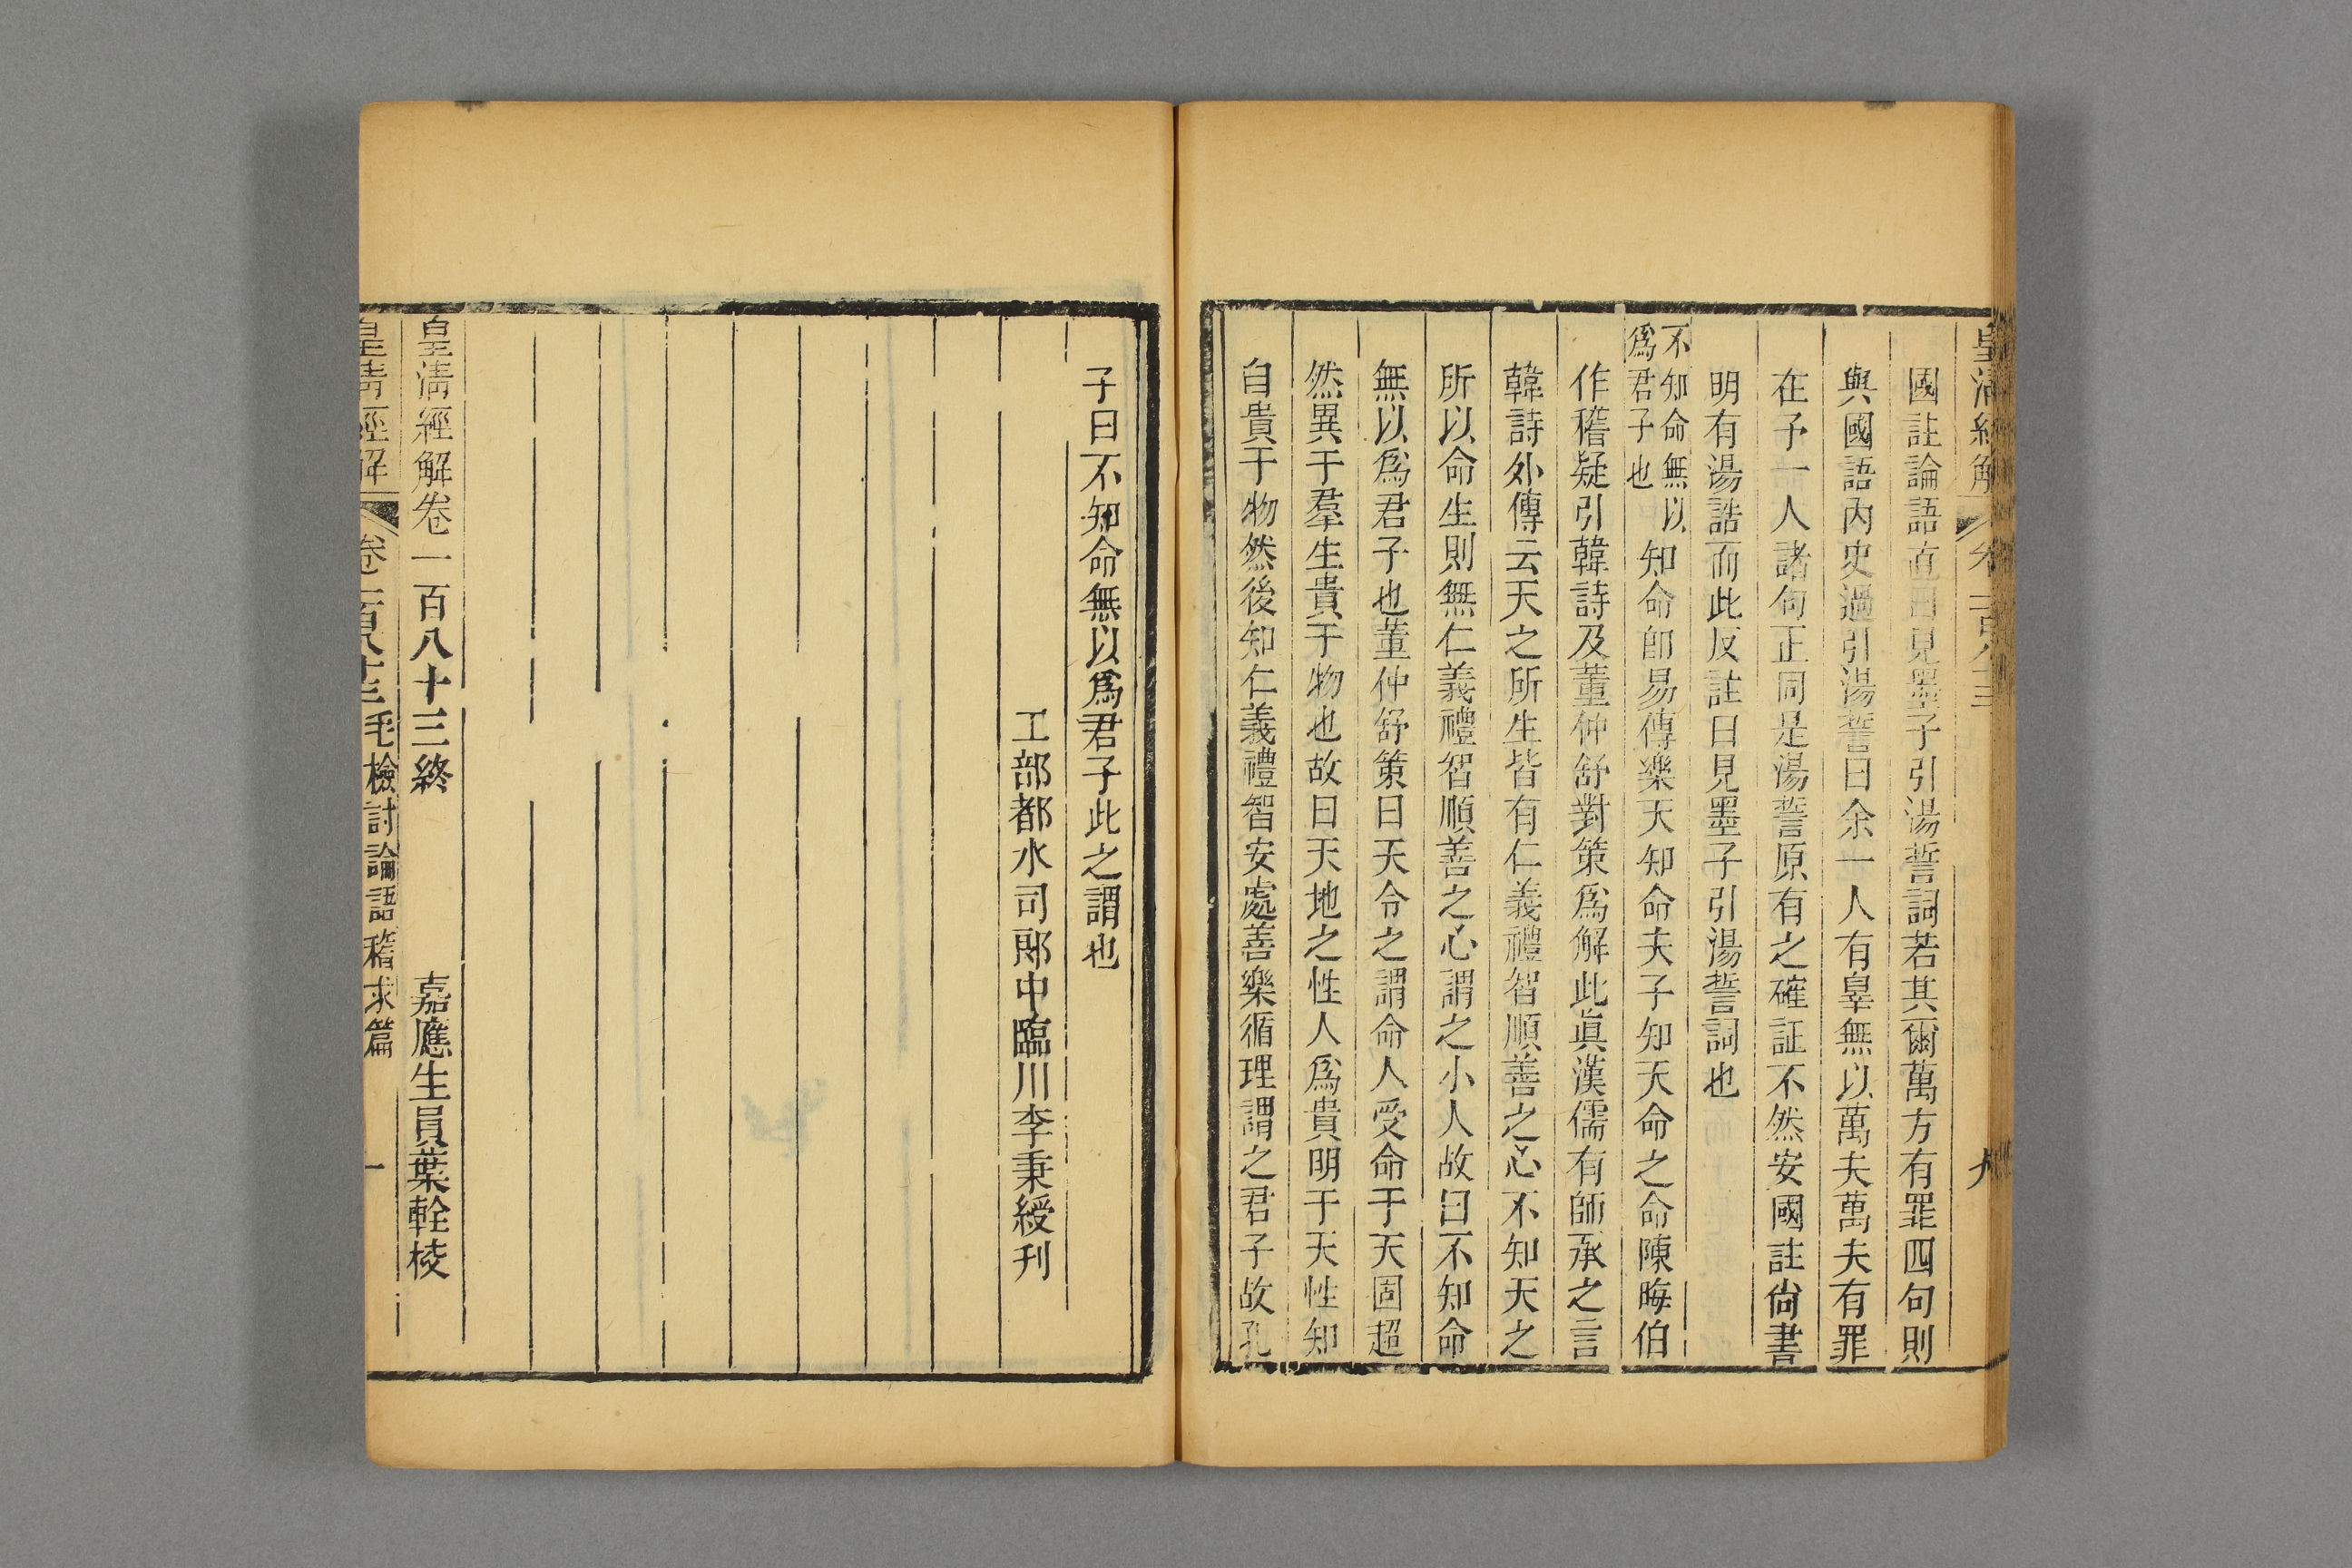 皇清經解 卷一百八十三 九
國註論語直曰見墨子引湯誓詞若其爾萬方有罪四句則
與國語內史過引湯誓曰余一人有辠無以萬夫萬夫有罪
在予一人諸句正同是湯誓原有之確証不然安國註尙書
明有湯誥而此反註曰見墨子引湯誓詞也
不知命無以
爲君子也
知命卽易傳樂天知命夫子知天命之命陳晦伯
作稽疑引韓詩及董仲舒對策爲解此眞漢儒有師承之言
韓詩外傳云天之所生皆有仁義禮智順善之心不知天之
所以命生則無仁義禮智順善之心謂之小人故曰不知命
無以爲君子也董仲舒策曰天令之謂命人受命于天固超
然異于羣生貴于物也故曰天地之性人爲貴明于天性知
自貴于物然後知仁義禮智安處善樂循理謂之君子故孔
子曰不知命無以爲君子此之謂也
工部都水司郞中臨川李秉綬刊
皇淸經解卷一百八十三終 嘉應生員葉輇棱
皇淸經解 卷一百八十三 毛檢討論語稽求篇 一